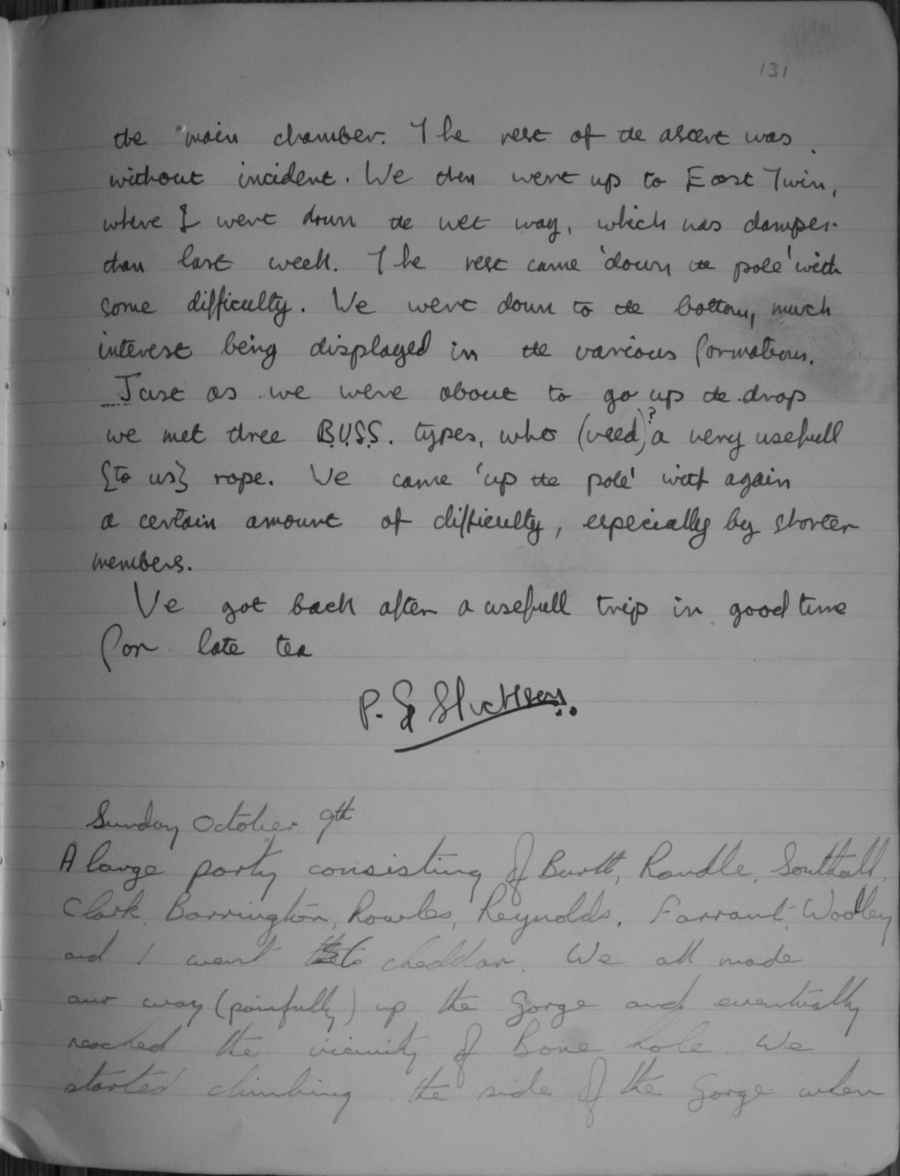 131
the main chamber. The rest of the ascent was
without incident. We then went up to East Twin,
where I went down the wet way, which was damper
than last week. The rest came 'down the pole' with
some difficulty. We went down to the bottom, much
interest being displayed in the various formations.
Just as we were about to go up the drop
we met three B.U.S.S. types, who (used)? a very usefull
{to us} rope. We came 'up the pole' with again
a certain amount of difficulty, especially by shorter
members.
We got back after a usefull trip in good time
for late tea
P. G
Sunday October 9th
A large party consisting of Burtt, Randle, Southall,
Clark, Barrington, Rowles, Reynolds, Farrant, Woolley
and I went to cheddar. We all made
our way (painfully) up the Gorge and eventually
reached the vicinity of Bone hole. We
started climbing the side of the Gorge when